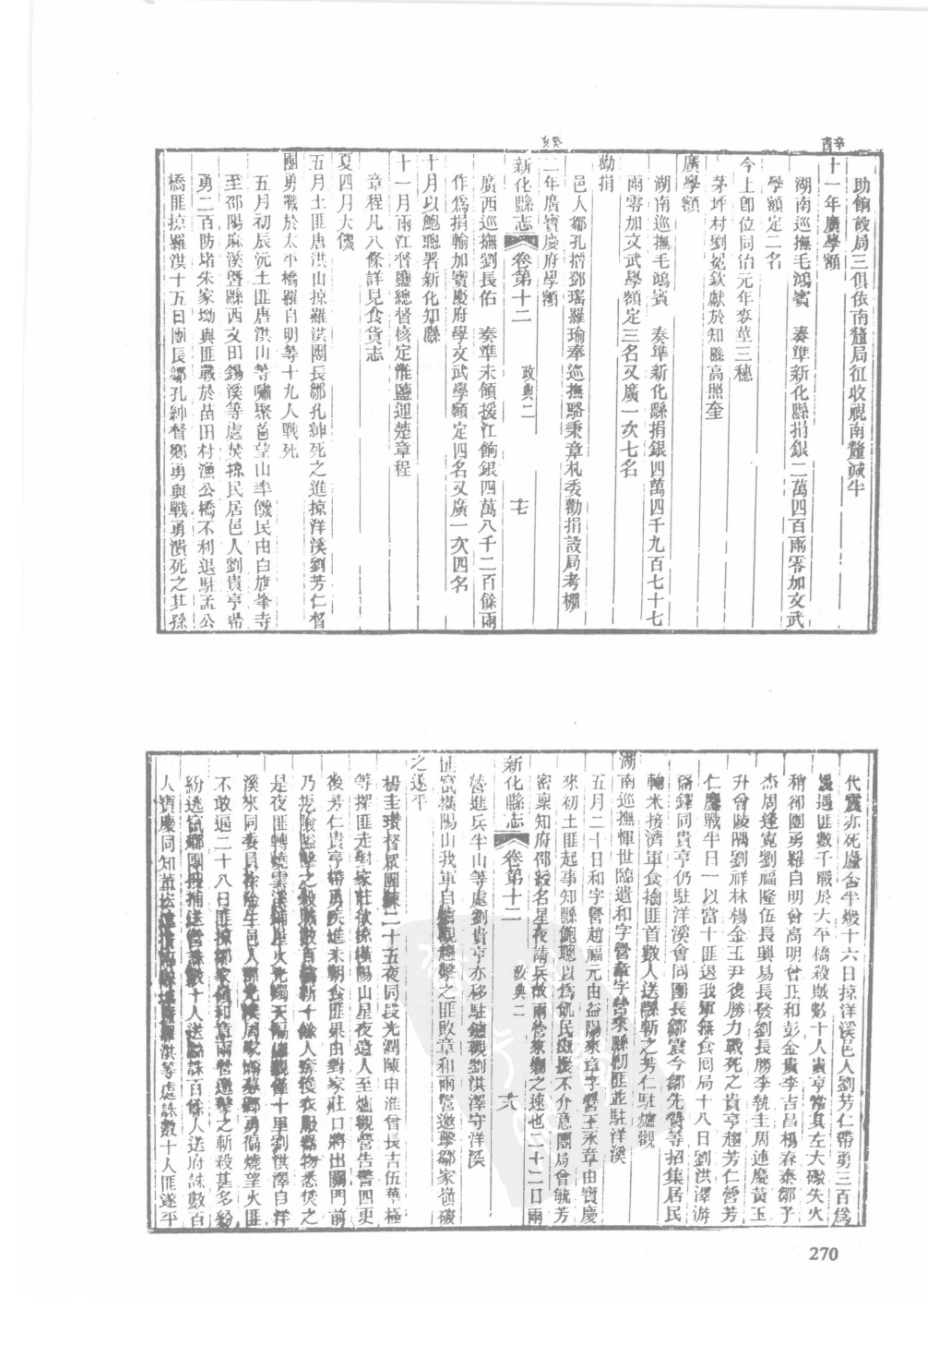 辛酉
癸亥
助餉設局三俱依南釐局征收視南釐減半
十一年廣學額
湖南巡撫毛鴻賓　奏準新化縣捐銀二萬四百兩零加文武
學額定二名
今上卽位同治元年麥莖三穗
茅坪村劉妮欽獻於知縣高照奎
廣學額
湖南巡撫毛鴻賓　奏準新化縣捐銀四萬四千九百七十七
兩零加文武學額定三名又廣一次七名
勸捐
邑人鄒孔搢鄧瑤羅瑜奉巡撫駱秉章札委勸捐設局考棚
二年廣寶慶府學額
新化縣志　卷第十二　政典二　十七
廣西巡撫劉長佑　奏準未領援江餉銀四萬八千二百餘兩
作爲捐輸加寶慶府學文武學額定四名又廣一次四名
十月以鮑聰署新化知縣
十一月兩江督鹽總督核定淮鹽運楚章程
章程凡八條詳見食貨志
夏四月大饑
五月土匪唐洪山掠羅洪團長鄒孔紳死之進掠洋溪劉芳仁督
團勇戰於太平橋羅自明等十九人戰死
五月初辰沅土匪唐洪山等嘯聚首望山率饑民由白旗峯寺
至邵陽麻溪暨縣西文田錫溪等處焚掠民居邑人劉貴亨帶
勇二百防堵朱家坳與匪戰於苗田村漁公橋不利退駐孟公
橋匪掠羅洪十五日團長鄒孔紳督鄉勇與戰勇潰死之其孫
代 亦死廬舍半燬十六日掠洋溪邑人劉芳仁帶勇三百爲
遇匪數千戰於大平橋殺賊數十人貴亨 其左大礮失火
稍卻團勇羅自明曾高明曾正和彭金貴李吉昌楊春泰鄒予
杰周逢寬劉福隆伍長興易長發劉長勝李執圭周連慶黃玉
升曾陵隅劉祥林楊金玉尹後勝力戰死之貴亨趨芳仁營芳
仁鏖戰半日一以當十匪退我軍無食回局十八日劉洪澤游
鐸同貴亨仍駐洋溪會同團長鄒 今鄒先贊等招集居民
輸米接濟軍食擒匪首數人送縣斬之芳仁駐爐觀
湖南巡撫惲世臨遣和字營章字營來縣勦匪並駐洋溪
五月二十日和字營趙福元由益陽來章字營王永章由寶慶
來初土匪起事知縣鮑聰以爲飢民 不介意團局曾毓芳
密稟知府邵綬名星夜請兵故兩營來 之速也二十二日兩
新化縣志　卷第十二　政典二　十八
營進兵牛山等處劉貴亨亦移駐爐觀劉洪澤守洋溪
匪竄橫陽山我軍自爐觀趨擊之匪敗章和兩營邀擊鄒家橫破
之遂平
楊圭璜督眾團 二十五夜同長光潤陳申淮曾長吉伍華極
等探匪走對家莊欲掠橫陽山星夜遣人至爐觀營告警四更
後芳仁貴亨帶勇疾進未朝食匪果由對家莊口將出關門前
乃 險 擊之殺賊數百 十餘人奪後衣服器物悉焚之
是夜匪轉燒雲溪鋪屋火光燭天 觀 十里劉洪澤自洋
溪來同委員 邑人 火匪
不敢過二十八日匪 兩營邀擊之斬殺甚多紛
紛逃竄鄉團 捕送營 數十人送縣誅百餘人送府誅數百
人寶慶同知 洪等處誅數十人匪遂平
270